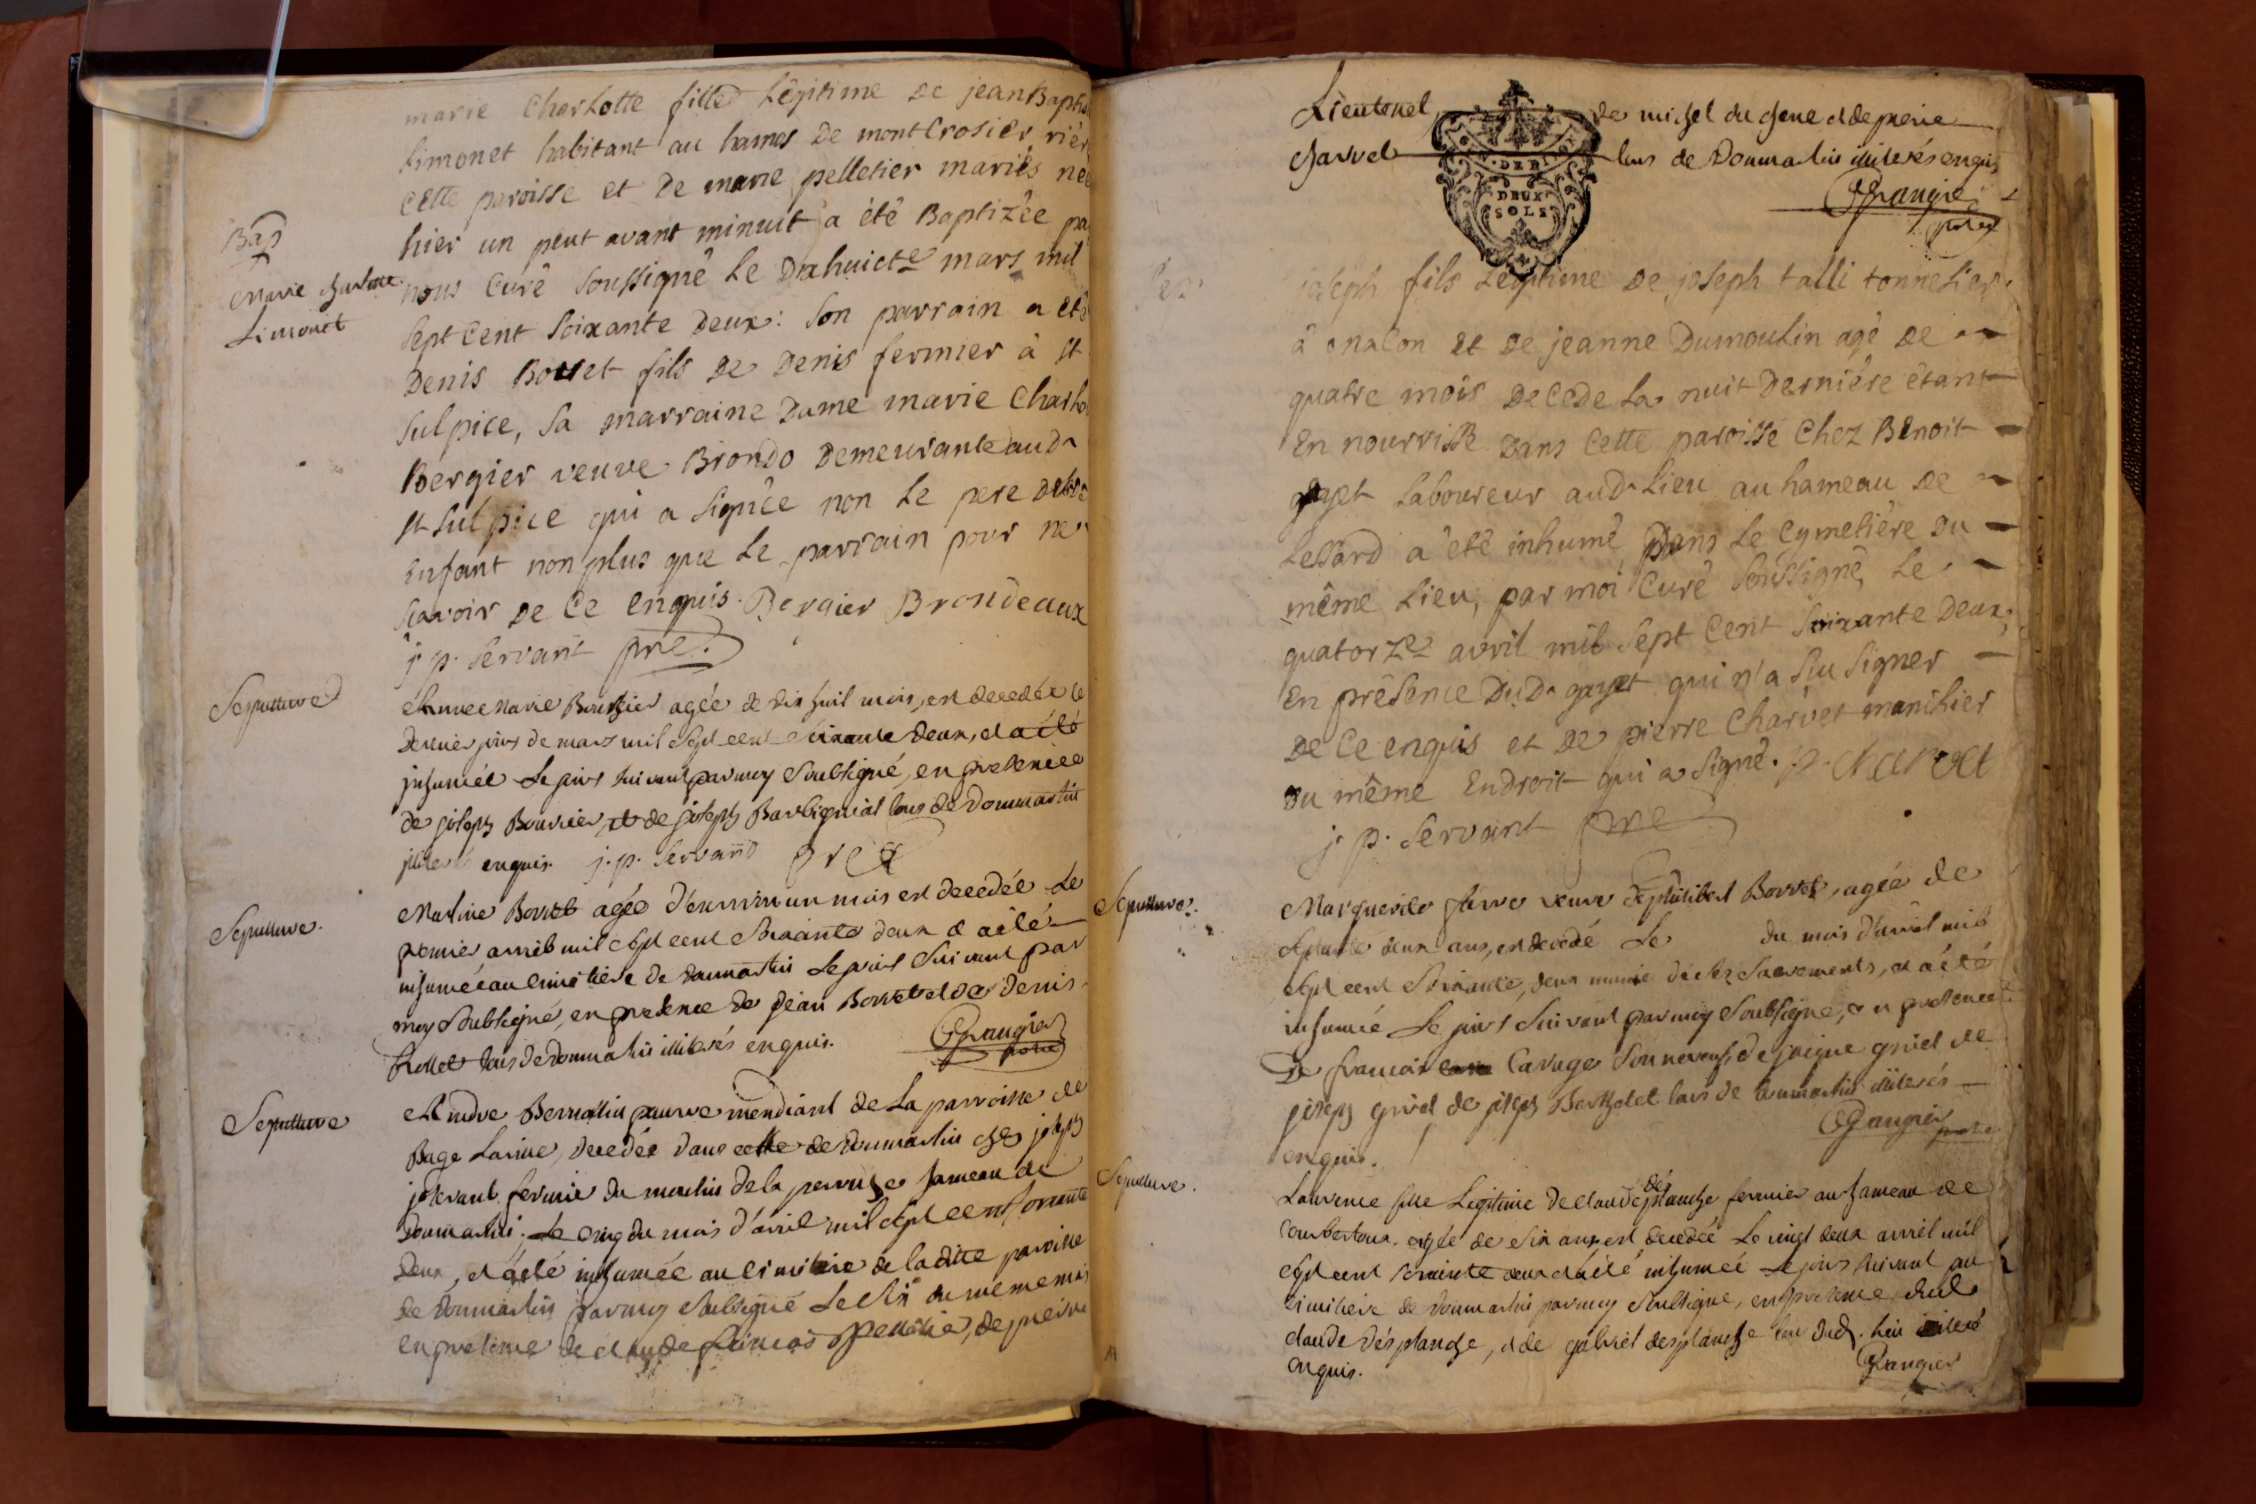 marie Charlotte fille Légitime de jean Bapti
Limonet habitant au hamos de montCrosier, rièr
Cette paroisse et de marie pelletier mariés née
Bap
hier un peut avant minuit a été Baptizée pa
Marie charlotte
nous Curé soussigné Le Dixhuicte mars mil
Limonet
sept Cent soixante deux: son parrain a eté
Denis Borret fils de Denis fermier à st
sulpice, sa marraine Dame marie Charlo
Bergier veuve Brondo demeurante aud
st sulpice qui a signée non Le pere de
enfant non plus que Le parrain pour ne
scavoir de Ce enquis. Bergier Brondeaux
j. p. servant pre.
Sepulture
marie agée de dix huit mois, est decedée le
dernier jour de mars mil sept cent soixante deux, et a été
inhumée Le jour suivant par moy soubsigné, en presence
de joseph Bouvier, et de joseph tous de dommartin
enquis. j. p. servand pre
Sepulture.
Martine Borret agée d'environ un mois est decedée Le
premier avril mil sept cent soixante deux et a été
inhumée au cimetiere de dommartin Le jour suivant par
moy soubsigné, en presence de jean Borret et de denis
tous de dommartin illiterés enquis.
Sepulture
André pauvre mendiant de La parroisse de
Bage decedée dans celle de dommartin chez joseph
fermier du moulin de la hameau de
dommartin, Le cinq du mois d'avril mil sept cent soixante
deux, et a été inhumée au cimetiere de la ditte paroisse
de dommartin par moy soubsigné Le six du meme mois
en presence de claude françois de pierre
Lieutenel de michel du chene et de pierre
charvet tous de Dommartin illiterés enquis
DEUX
SOLS
joseph fils Légitime de joseph talli tonnelier
à mâcon et de jeanne Dumoulin agé de
quatre mois decede La nuit dernière étant
En nourrisse dans Cette paroisse Chez Benoit
gayet Laboureur aud. Lieu au hameau de
Lessard a été inhumé Dans Le Cymetière du
même Lieu, par moi Curé soussigné, Le
quatorze avril mil sept Cent soixante deux,
En présence Dud. gayet qui n'a sçu signer
de Ce enquis et de pierre Charvet
du même Endroit qui a signé. p. charvet
j. p. servant pre
Sepulture.
Marguerite veuve de philibert Borret, agée de
septante deux ans, est decedé Le du mois d'avril mil
sept cent soixante, deux munie de ses sacrements, et a été
inhumée Le jour suivant par moy soubsigné, en presence
De francois Carage son neveux, de
joseph de joseph Berthelet tous de dommartin illiterés
enquis.
Sepulture.
Laurence fille Legitime de claude desplanche fermier au hameau de
agée de six ans, est decedée Le vingt deux avril mil
sept cent soixante deux et a été inhumée Le jour suivant au
cimitiere de dommartin par moy soubsigné, en presence dud.
claude desplanche, et de gabriel desplanche dud. lieu
enquis.